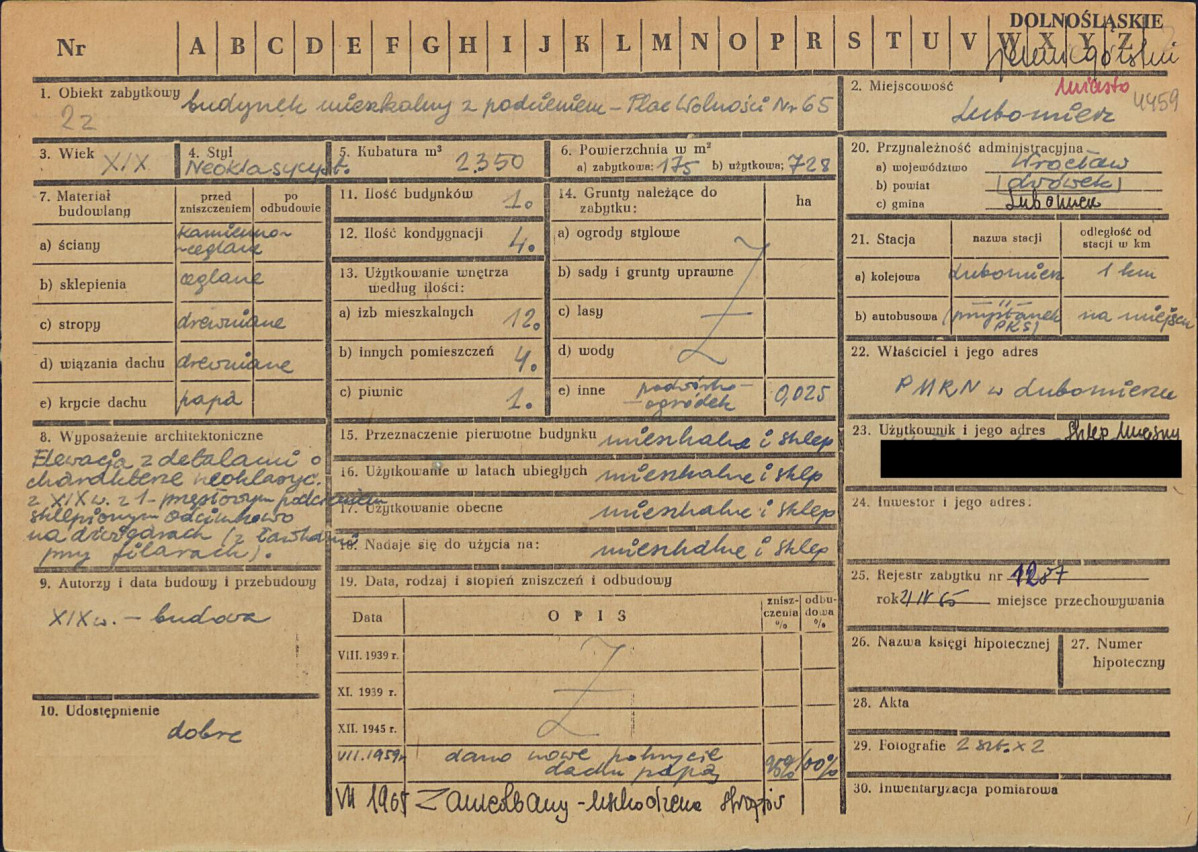 DOLNOŚLĄSKIE
Nr A B C D E F G H I J K L M N O P R S T U V W X Y Z
1. Obiekt zabytkowy budynek mieszkalny z podcieniem – Plac Wolności Nr 65
2. Miejscowość miasto 4459
Lubomierz
3. Wiek XIX
4. Styl Neoklasycyst.
5. Kubatura m³ 2350
6. Powierzchnia w m²
a) zabytkowa: 175 b) użytkowa: 728
20. Przynależność administracyjna
a) województwo Wrocław
b) powiat (Lwówek)
c) gmina Lubomierz
7. Materiał budowlany
przed zniszczeniem
po odbudowie
a) ściany kamienno-ceglane
b) sklepienia ceglane
c) stropy drewniane
d) wiązania dachu drewniane
e) krycie dachu papa
11. Ilość budynków 1.
12. Ilość kondygnacji 4.
13. Użytkowanie wnętrza według ilości:
a) izb mieszkalnych 12.
b) innych pomieszczeń 4.
c) piwnic 1.
14. Grunty należące do zabytku:
ha
a) ogrody stylowe
b) sady i grunty uprawne
c) lasy
d) wody
e) inne podwórko-ogródek 0,025
21. Stacja
nazwa stacji
odległość od stacji w km
a) kolejowa Lubomierz 1 km
b) autobusowa —"— (przystanek PKS) na miejscu
22. Właściciel i jego adres
PMRN w Lubomierzu
8. Wyposażenie architektoniczne
Elewacja z detalami o
charakterze neoklasyc.
z XIX w. z 1-przęsłowym podcieniem
sklepionym odcinkowo
na dźwigarach (z ławkami
przy filarach).
15. Przeznaczenie pierwotne budynku mieszkalne i sklep
16. Użytkowanie w latach ubiegłych mieszkalne i sklep
17. Użytkowanie obecne mieszkalne i sklep
18. Nadaje się do użycia na: mieszkalne i sklep
23. Użytkownik i jego adres Sklep
24. Inwestor i jego adres:
9. Autorzy i data budowy i przebudowy
XIX w. – budowa
10. Udostępnienie
dobre
19. Data, rodzaj i stopień zniszczeń i odbudowy
Data
OPIS
zniszczenia %
odbudowa %
VIII. 1939 r.
XI. 1939 r.
XII. 1945 r.
VII. 1959 r. dano nowe pokrycie
dachu papą 95% 100%
VII 1965 Zamieszkany - uszkodzenia stropów
25. Rejestr zabytku nr 1287
rok 21 IV 65 miejsce przechowywania
26. Nazwa księgi hipotecznej
27. Numer hipoteczny
28. Akta
29. Fotografie 2 szt. x 2
30. Inwentaryzacja pomiarowa